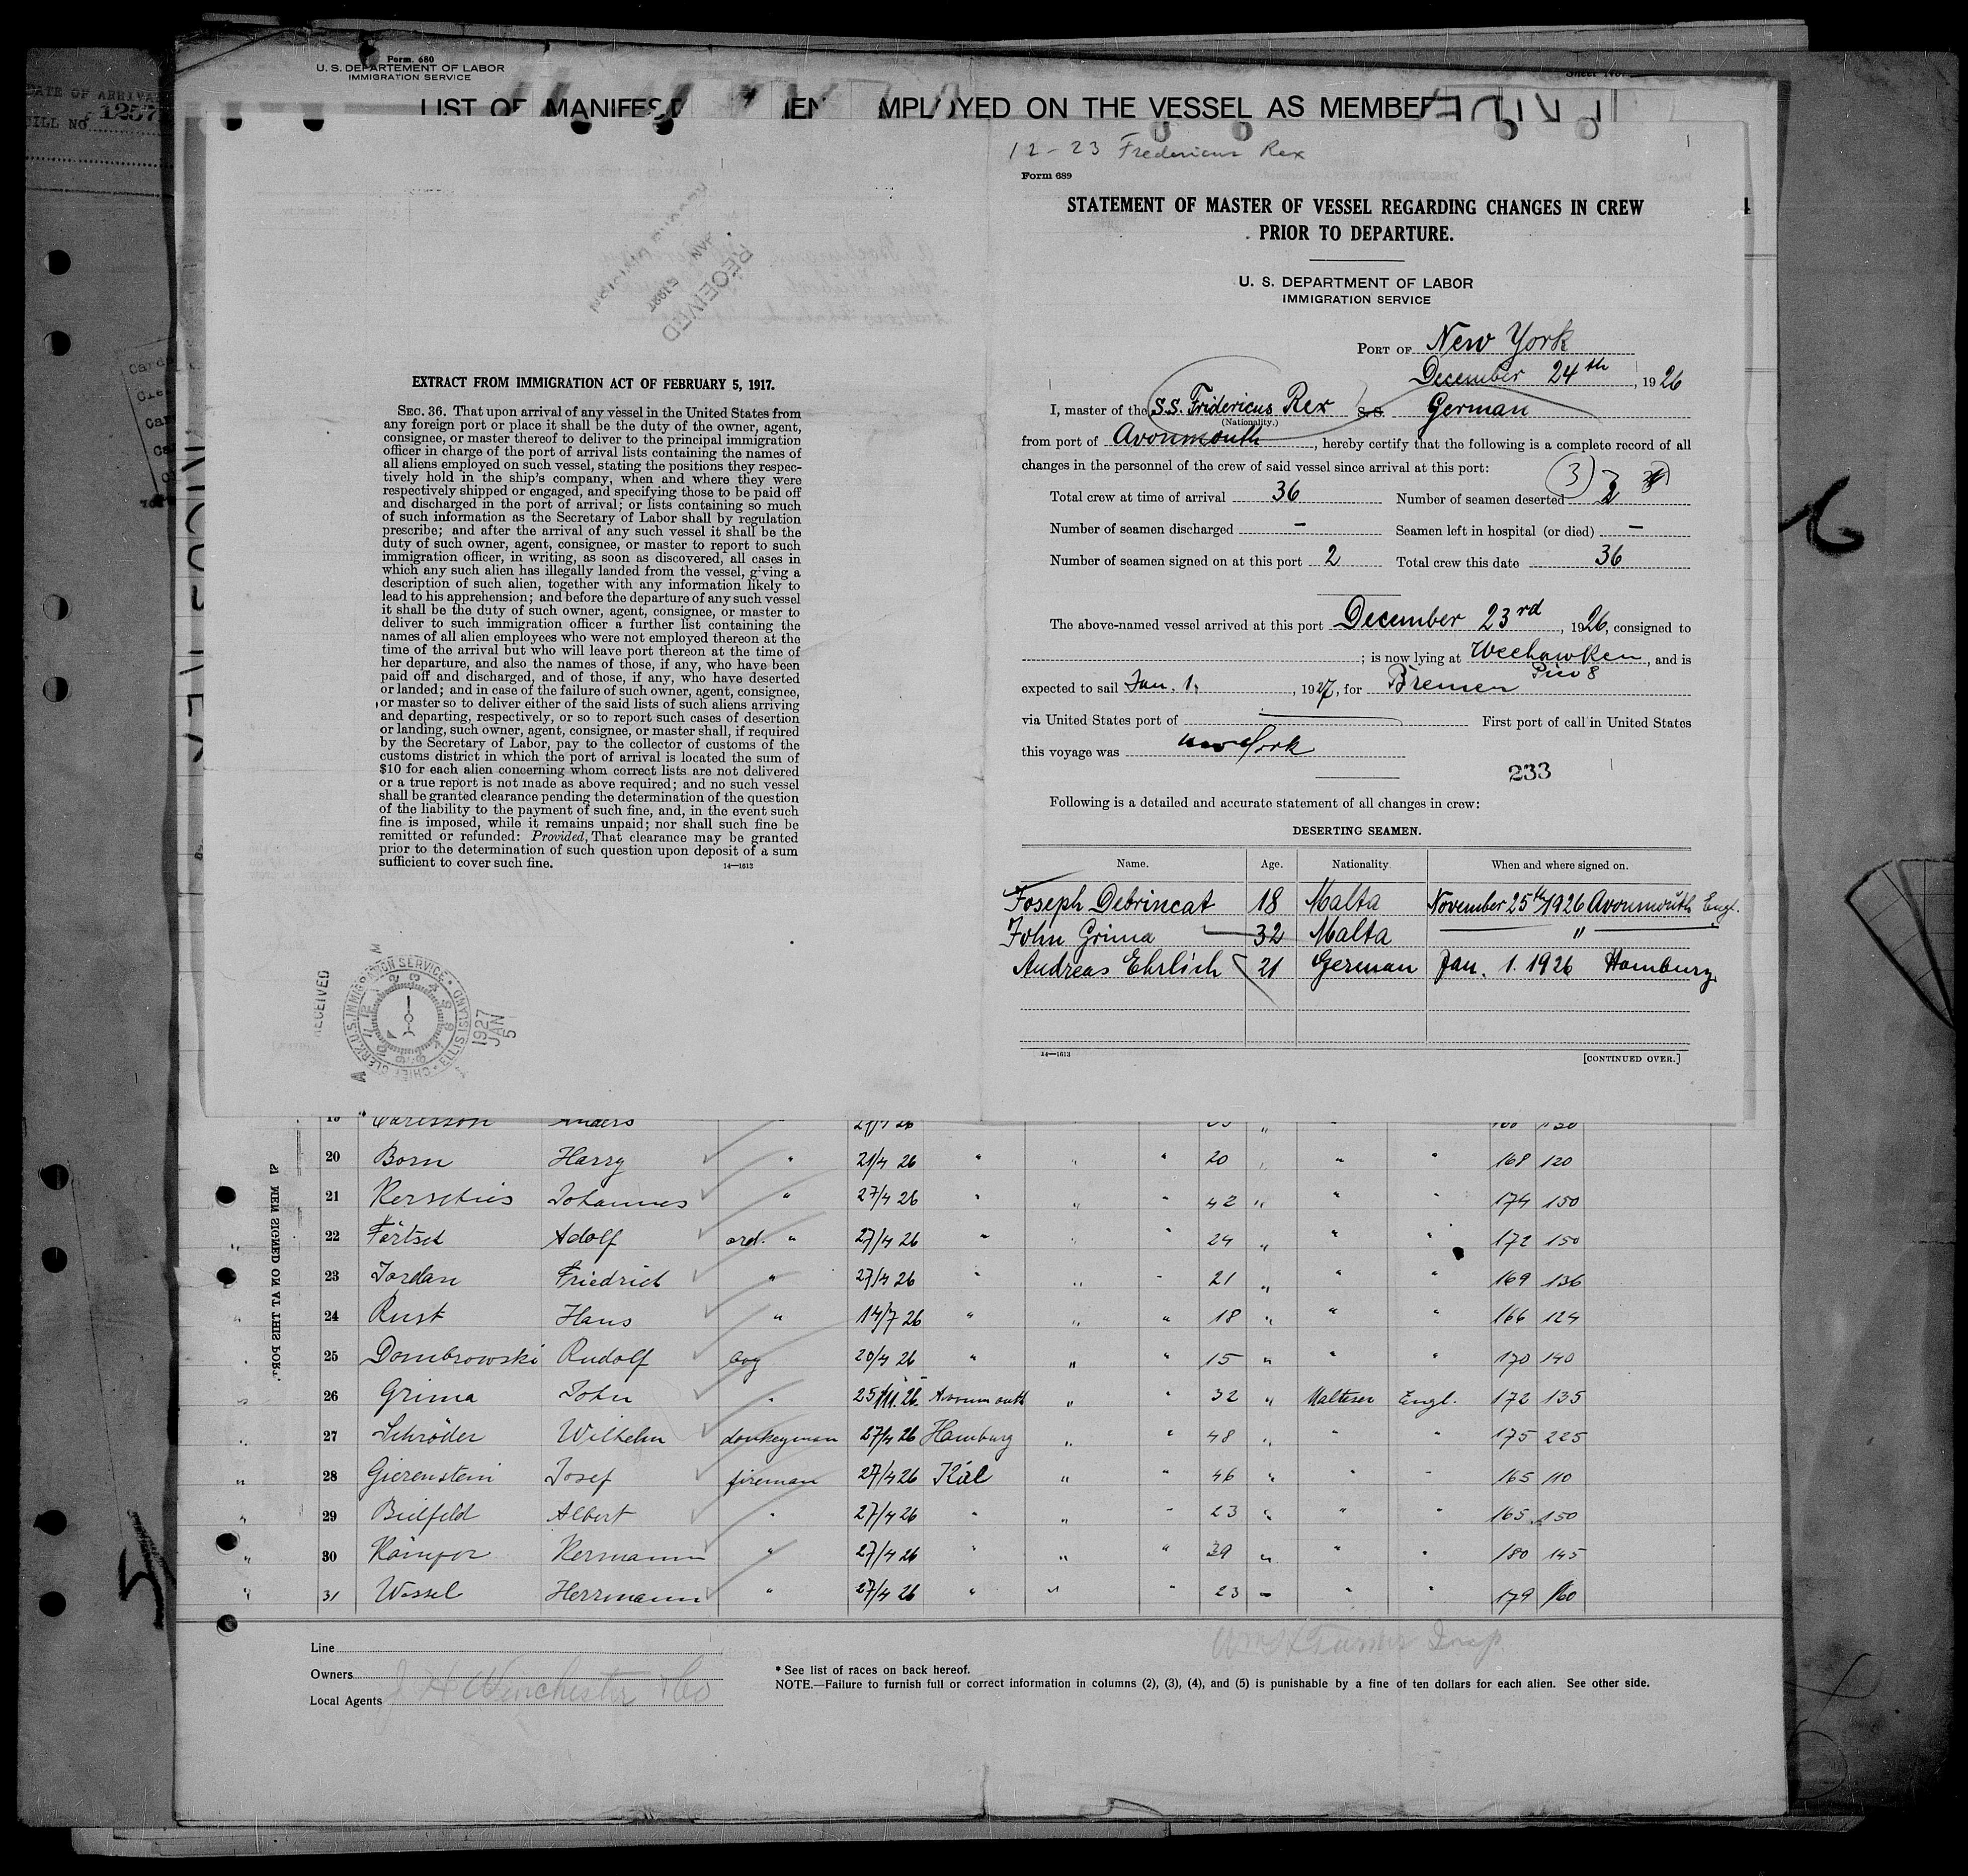 Form. 680
U. S. DEPARTEMENT OF LABOR
IMMIGRATION SERVICE
DATE OF ARRIVAL
1257
LIST OF MANIFES IEN MPLOYED ON THE VESSEL AS MEMBE
12-23 Fredericus Rex
Form 689
STATEMENT OF MASTER OF VESSEL REGARDING CHANGES IN CREW
PRIOR TO DEPARTURE.
U. S. DEPARTMENT OF LABOR
IMMIGRATION SERVICE
PORT OF New York
December 24th, 1926
I, master of the S.S. Fridericus Rex S.S. German
(Nationality.)
from port of Avonmouth, hereby certify that the following is a complete record of all
changes in the personnel of the crew of said vessel since arrival at this port:
Total crew at time of arrival 36 Number of seamen deserted (3) 2
Number of seamen discharged – Seamen left in hospital (or died) –
Number of seamen signed on at this port 2 Total crew this date 36
The above-named vessel arrived at this port December 23rd, 1926, consigned to
; is now lying at Weehawken, and is
Pier 8
expected to sail Jan. 1, 1927, for Bremen
via United States port of First port of call in United States
this voyage was New York
233
Following is a detailed and accurate statement of all changes in crew:
DESERTING SEAMEN.
Name. Age. Nationality. When and where signed on.
Joseph Debrincat 18 Malta November 25th 1926 Avonmouth Engl.
John Grima 32 Malta "
Andreas Ehrlich 21 German Jan. 1. 1926 Hamburg
14—1613 [CONTINUED OVER.]
RECEIVED
EXTRACT FROM IMMIGRATION ACT OF FEBRUARY 5, 1917.
SEC. 36. That upon arrival of any vessel in the United States from
any foreign port or place it shall be the duty of the owner, agent,
consignee, or master thereof to deliver to the principal immigration
officer in charge of the port of arrival lists containing the names of
all aliens employed on such vessel, stating the positions they respec-
tively hold in the ship's company, when and where they were
respectively shipped or engaged, and specifying those to be paid off
and discharged in the port of arrival; or lists containing so much
of such information as the Secretary of Labor shall by regulation
prescribe; and after the arrival of any such vessel it shall be the
duty of such owner, agent, consignee, or master to report to such
immigration officer, in writing, as soon as discovered, all cases in
which any such alien has illegally landed from the vessel, giving a
description of such alien, together with any information likely to
lead to his apprehension; and before the departure of any such vessel
it shall be the duty of such owner, agent, consignee, or master to
deliver to such immigration officer a further list containing the
names of all alien employees who were not employed thereon at the
time of the arrival but who will leave port thereon at the time of
her departure, and also the names of those, if any, who have been
paid off and discharged, and of those, if any, who have deserted
or landed; and in case of the failure of such owner, agent, consignee,
or master so to deliver either of the said lists of such aliens arriving
and departing, respectively, or so to report such cases of desertion
or landing, such owner, agent, consignee, or master shall, if required
by the Secretary of Labor, pay to the collector of customs of the
customs district in which the port of arrival is located the sum of
$10 for each alien concerning whom correct lists are not delivered
or a true report is not made as above required; and no such vessel
shall be granted clearance pending the determination of the question
of the liability to the payment of such fine, and, in the event such
fine is imposed, while it remains unpaid; nor shall such fine be
remitted or refunded: Provided, That clearance may be granted
prior to the determination of such question upon deposit of a sum
sufficient to cover such fine. 14—1613
RECEIVED
CHIEF CLERK, U.S. IMMIGRATION SERVICE ELLIS ISLAND
1927 JAN 5
19 Carlsson Anders
20 Born Harry " 21/4 26 " " " 20 " " " 168 120
21 Kerschies Johannes " 27/4 26 " " 42 " " " 174 150
22 Förtsch Adolf ord. " 27/4 26 " " " 24 " " " 172 150
23 Jordan Friedrich " 27/4 26 " " " 21 " " " 169 136
24 Rust Hans " 14/7 26 " " " 18 " " " 166 124
25 Dombrowski Rudolf boy 20/4 26 " " " 15 " " " 170 140
26 Grima John " 25/11.26. Avonmouth " " 32 " Malteser Engl. 172 135
27 Schröder Wilhelm donkeyman 27/4 26 Hamburg " " 48 " " " 175 225
28 Gierenstein Josef fireman 27/4 26 Kiel " " 46 " " " 165 110
29 Bielfeld Albert " 27/4 26 " " " 23 " " " 165 150
30 Kämpor Hermann " 27/4 26 " " " 39 " " " 180 145
31 Wessel Herrmann " 27/4 26 " " " 23 " " " 179 160
MEN SIGNED ON AT THIS PORT.
Line
Owners
Local Agents J H Winchester & Co
* See list of races on back hereof.
NOTE.—Failure to furnish full or correct information in columns (2), (3), (4), and (5) is punishable by a fine of ten dollars for each alien. See other side.
5
6